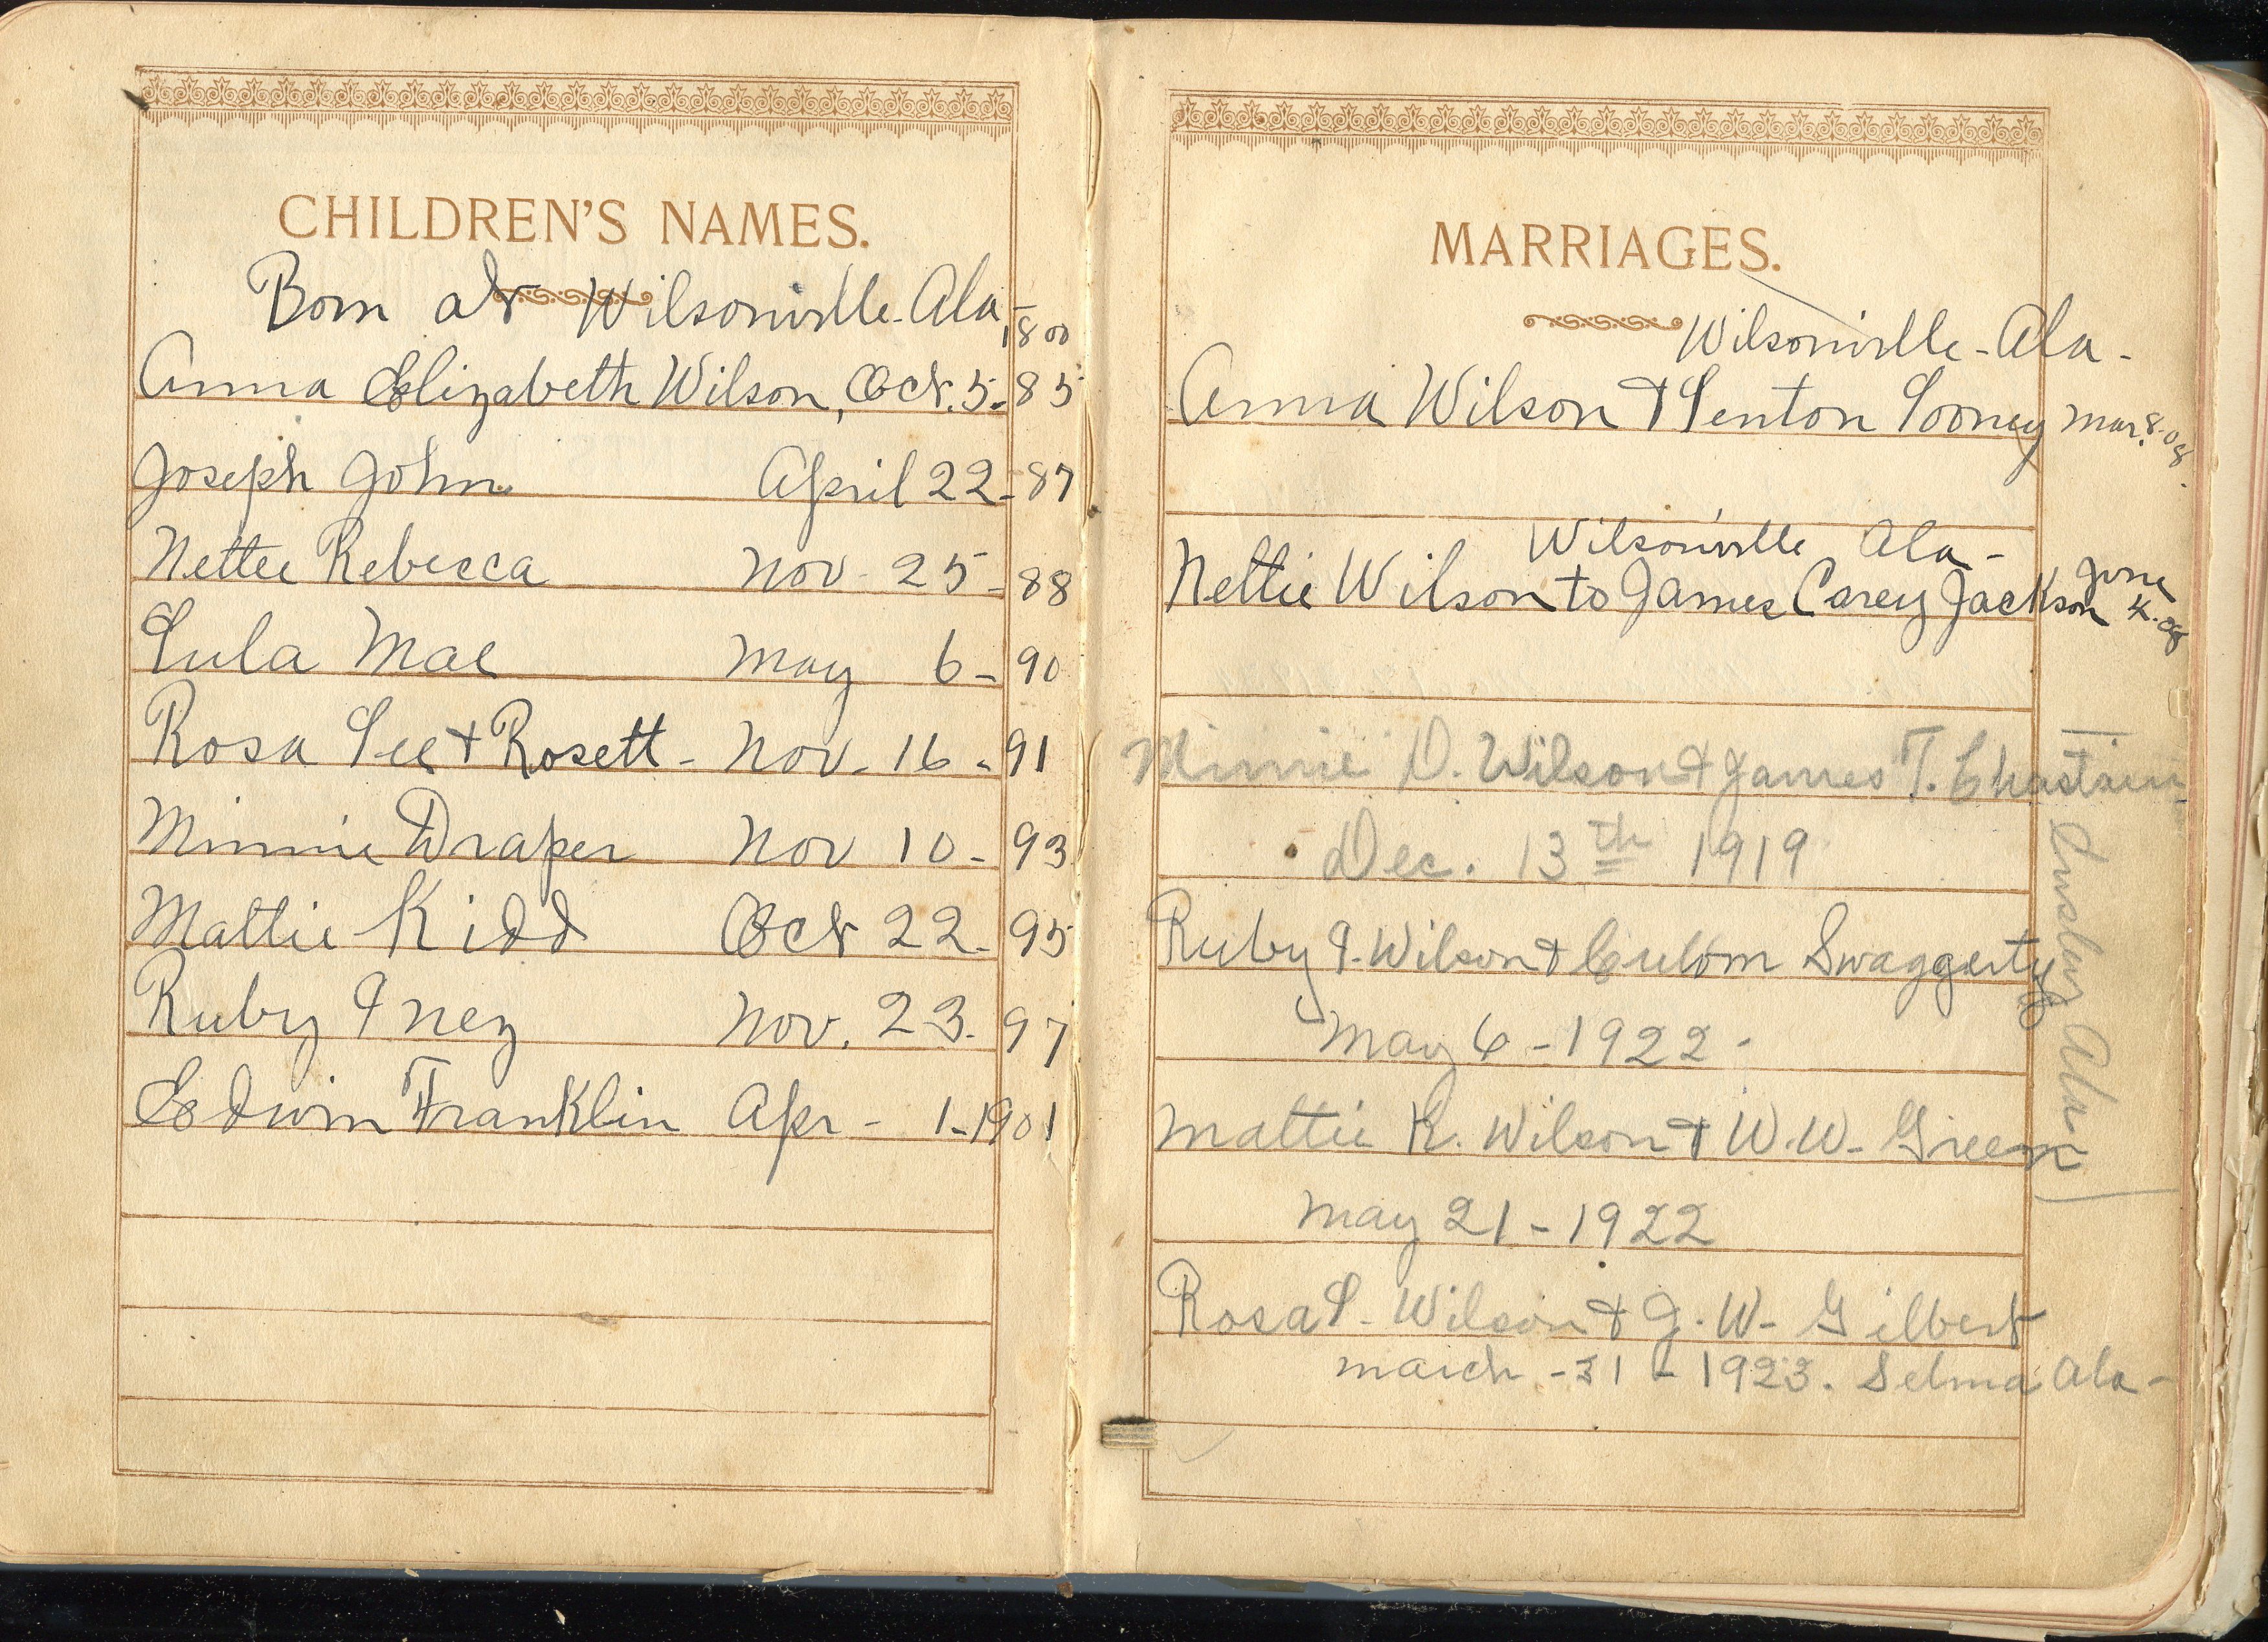 CHILDREN'S NAMES.
Born at Wilsonville-Ala,
1800
Anna Elizabeth Wilson, Oct. 5-85
Joseph John April 22-87
Nettie Rebecca Nov-25-88
Lula Mae May 6-90
Rosa Lee & Rosett- Nov. 16-91
Minnie Draper Nov 10-93
Mattie Kidd Oct 22-95
Ruby Inez Nov. 23-97
Edwin Franklin Apr- 1-1901
MARRIAGES.
Wilsonville-Ala-
Anna Wilson & Lenton Looney Mar. 8-08.
Wilsonville Ala-
Nettie Wilson to James Carey Jackson June 4-08
Minnie D. Wilson & James T. Chastain
Dec. 13th 1919
Ruby I. Wilson & Culom Swaggerty
May 6-1922-
Mattie K. Wilson & W.W- Green
May 21-1922
Ensley Ala
Rosa L. Wilson & J. W- Gilbert
march-31-1923. Selma Ala-